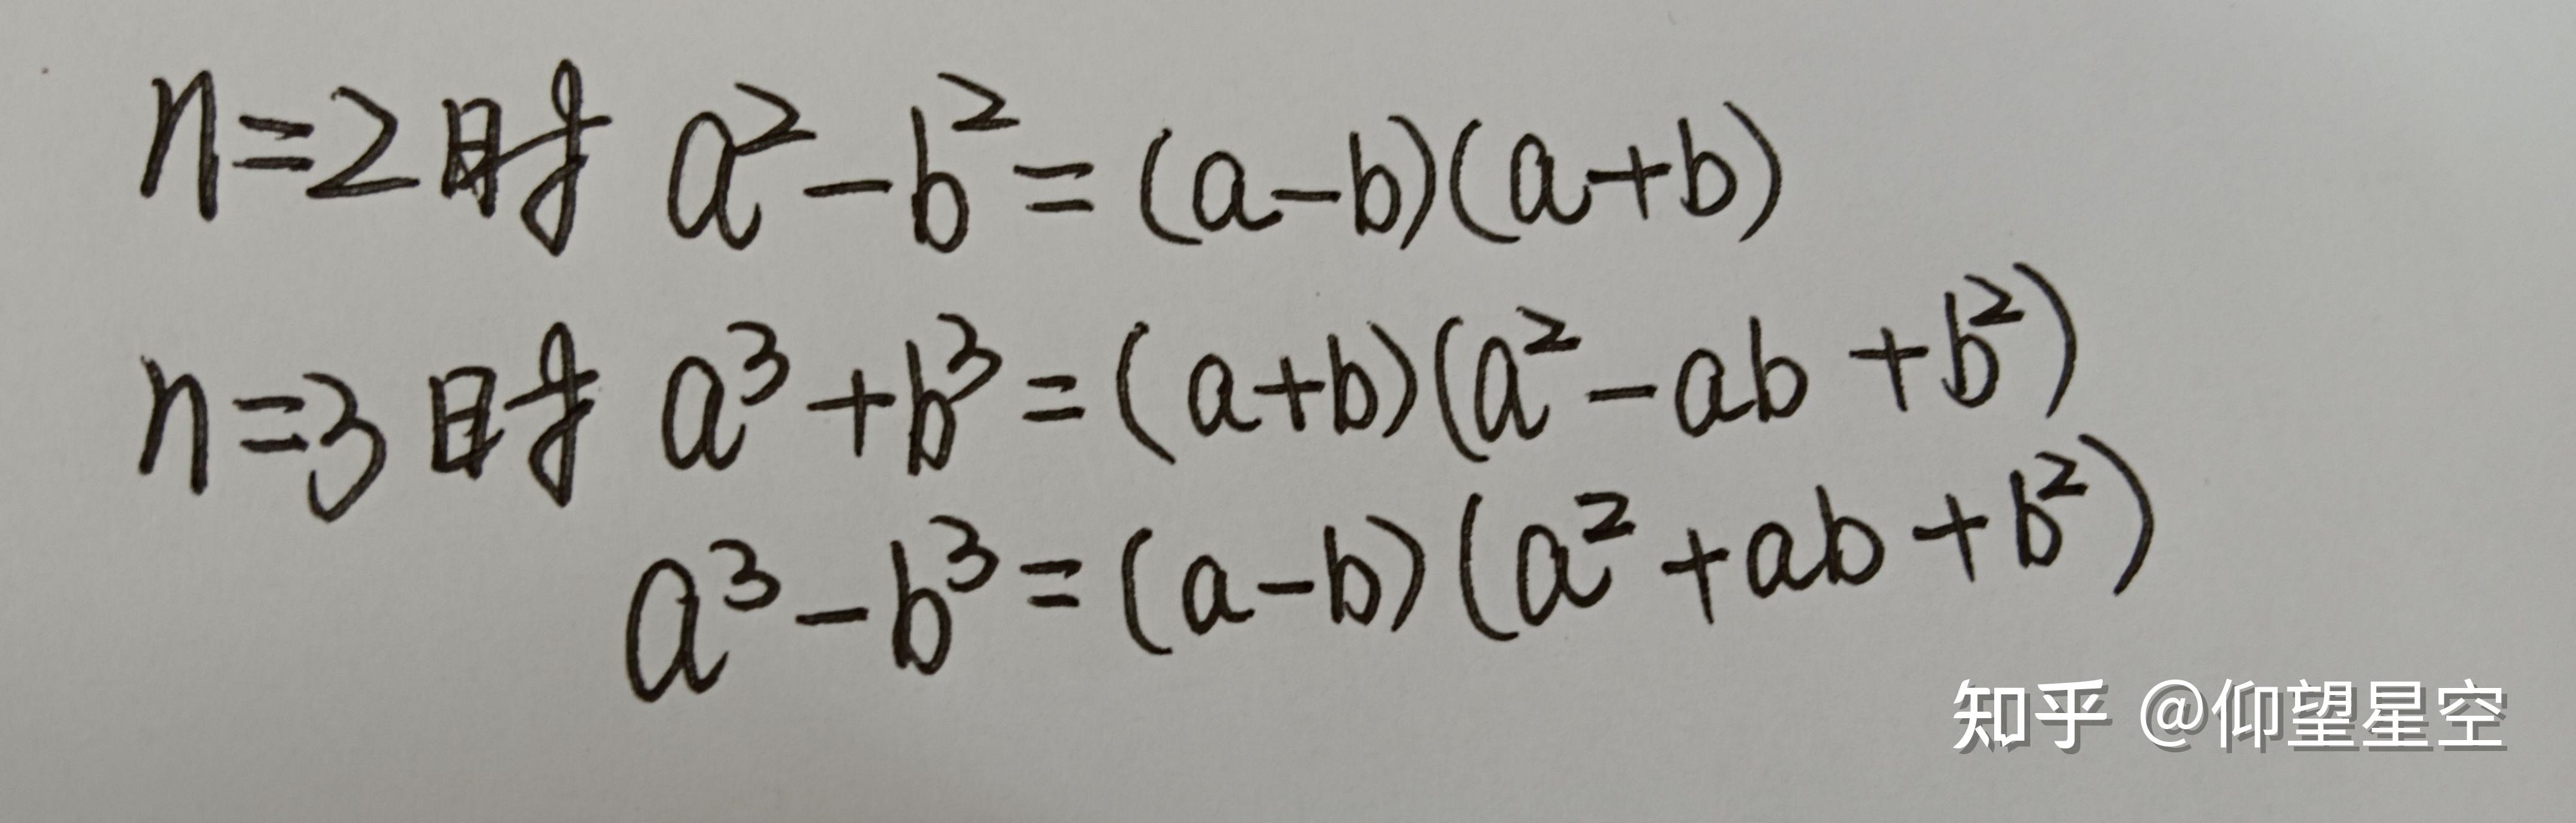 n=2时 a²-b²=(a-b)(a+b)
n=3时 a³+b³=(a+b)(a²-ab+b²)
a³-b³=(a-b)(a²+ab+b²)
知乎 @仰望星空